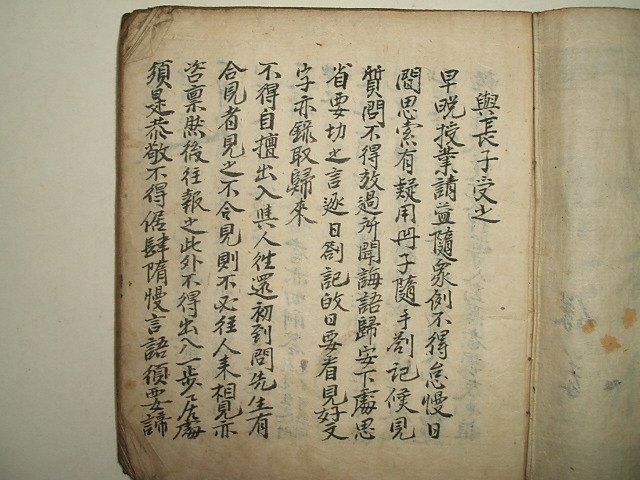 與長子受之
早晩授業請益隨衆例不得怠慢日
間思索有疑用冊子隨手劄記候見
質問不得放過所聞誨語歸安下處思
省要切之言逐日劄記的日要看見好文
字亦錄取歸來
不得自擅出入與人徃還初到問先生有
合見者見之不合見則不必往人來相見亦
咨禀然後往報之此外不得出入一步居處
須是恭敬不得倨肆隋慢言語須要諦